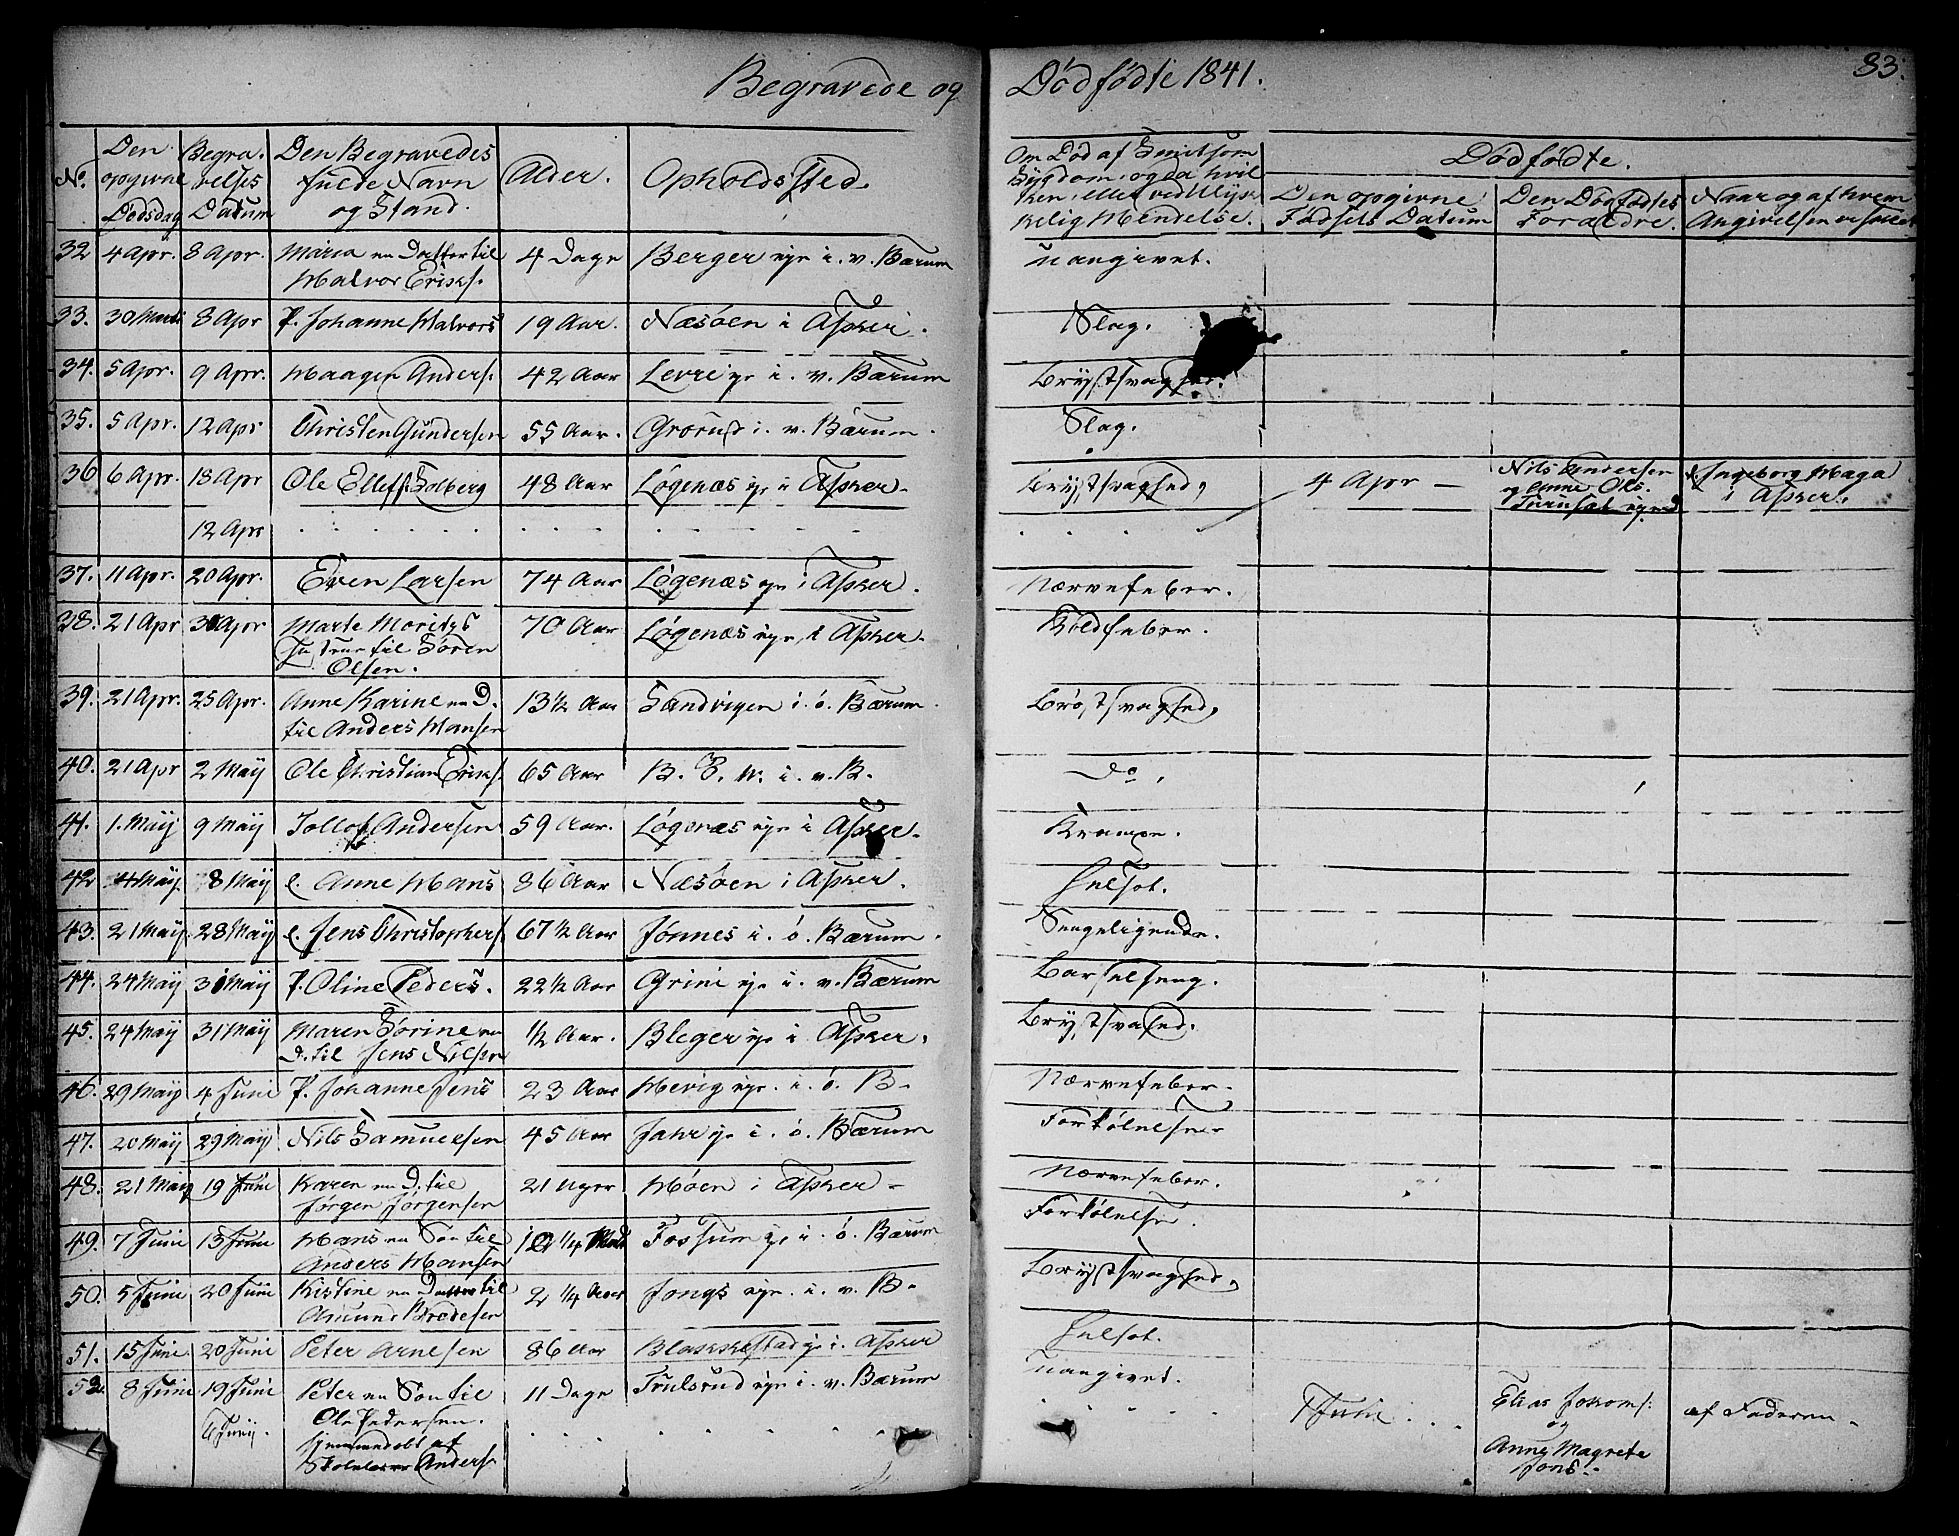 Begravede og Dödfödte 1841. 83.
No. Den opgivne Dödsdag Begra-velses Datum Den Begravedes fulde Navn og Stand. Alder. Opholdssted. Om Död af Smitsom Sygdom, og da hvilken, eller ved Ulykkelig Hendelse. Dödfödte.
Den opgivne Födsels Datum Den Dödfödtes Forældre. Naar og af hvem Angivelsen er skeet
32 4 Apr. 8 Apr. Maria en Datter til Halvor Eriks. 4 Dage Berger eje i. v. Bærum uangivet.
33. 30 Marti 8 Apr P. Johanne Halvors 19 Aar. Næsöen i Asker. Slag.
34. 5 Apr. 9 Apr. Haagen Anders. 42 Aar Levre eje i. v. Bærum Brystsvaghed.
35. 5 Apr. 12 Apr Christen Gundersen 55 Aar. Grorud i. v. Bærum. Slag.
36 6 Apr. 18 Apr Ole Ellefs. Solberg 48 Aar Lögenæs eje i Asker. Brystsvaghed, 4 Apr — Nils Andersen og Anne Ols. Ingeborg Haga i Asker.
12 Apr
37. 11 Apr. 20 Apr. Even Larsen 74 Aar Lögenæs eje i Asker. Nærvefeber.
38. 21 Apr 30 Apr Marte Moritzs Hustrue til Sören Olsen. 70 Aar Lögenæs eje i Asker. Koldfeber.
39. 21 Apr. 25 Apr. Anne Karine en D. til Anders Hansen 13 1/2 Aar Sandvigen i. ö. Bærum. Bröstsvaghed,
40. 21 Apr 2 Maij Ole Christian Eriks. 65 Aar B. E. W. i. v. B. Do,
41. 1. Maij 9 Maij Tollof Andersen 59 Aar. Lögenæs eje i Asker. Krampe.
42 4 Maij 8 Maij e. Anne Hans 86 Aar Næsöen i Asker. Helsot.
43. 21 Maij. 28 Maij e. Jens Christophers. 67 1/2 Aar Jönnes i. ö. Bærum. Sengeliggende.
44. 24 Maij 31 Maij P. Oline Peders. 22 1/2 Aar Grini eje i. v. Bærum Barselseng.
45. 24 Maij 31 Maij Maren Sörine en D. til Jens Nilsen 1/2 Aar. Bleger eje i Asker. Brystsvahed.
46. 29 Maij 4 Juni P. Johanne Jens 23 Aar Hevig eje. i. ö. B. Nærvefeber.
47. 20 Maij 29 Maij Nils Samuelsen 45 Aar Jahr eje i. ö. Bærum Forkölelse.
48. 21 Maij 19 Juni Karen en D. til Jörgen Jörgensen 21 Uger Höen i Asker. Nærvefeber.
49. 7 Juni 13 Juni Hans en Sön til Anders Hansen 1/4 Fossum eje i. ö. Bærum Forkölelse.
50. 5 Juni 20 Juni Kistine en Datter til Amund Bredesen 2 1/4 Aar Jongs eje. i. v. B. Brystsvaghed,
51. 15 Juni 20 Juni Peter Arnesen 86 Aar Blakkestad eje i. Asker Helsot.
52. 8 Juni 19 Juni Peter en Sön til Ole Pedersen. 11 Dage Trulsrud eje i. v. Bærum Uangivet.
hjemmedöbt af Skolelærer Anders.
Juni Elias Johans. og Anne Magrete Jons. af Faderen.